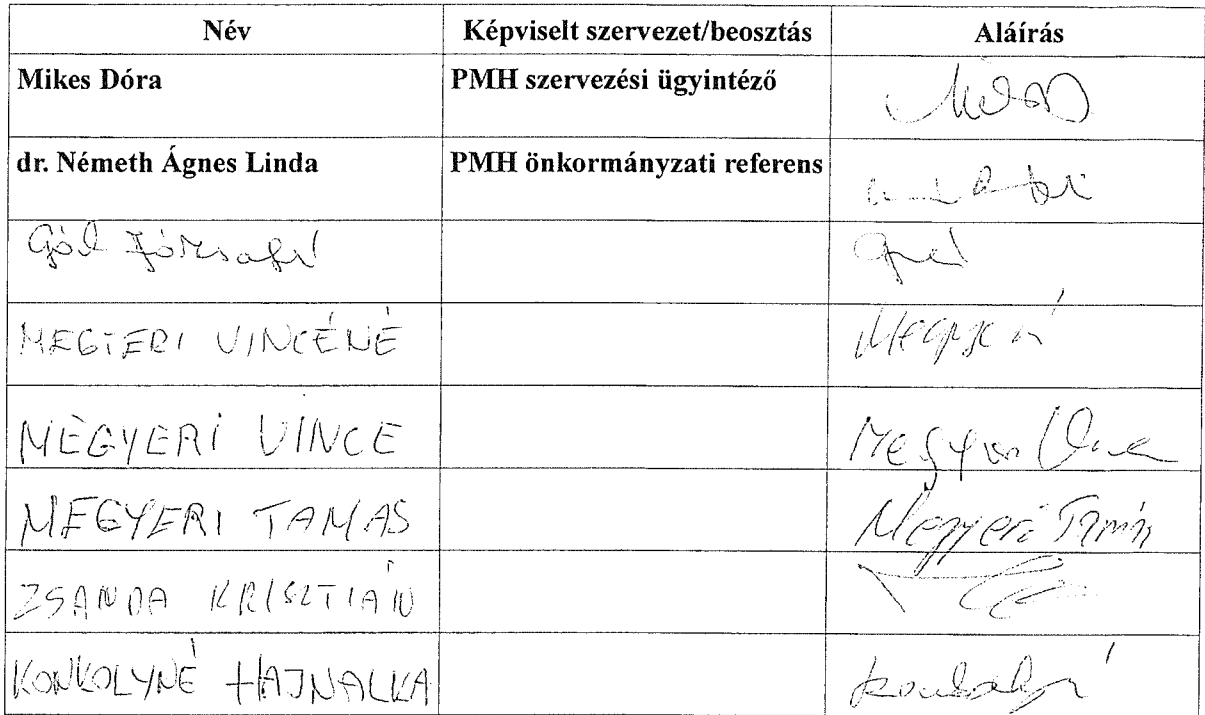 Név Képviselt szervezet/beosztás Aláírás
Mikes Dóra PMH szervezési ügyintéző
dr. Németh Ágnes Linda PMH önkormányzati referens
Gál Józsefné
MEGYERI VINCÉNÉ
MEGYERI VINCE Megyeri Vince
MEGYERI TAMÁS Megyeri Tamás
ZSANDA KRISZTIÁN
KONKOLYNÉ HAJNALKA Konkolyné